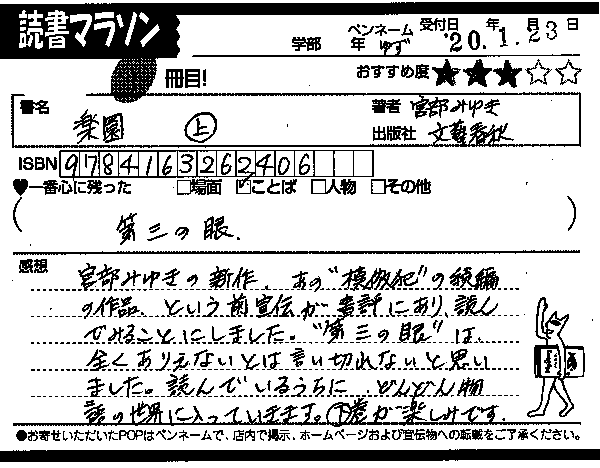 読書マラソン
学部 年 ペンネーム ゆず 受付日 '20.年1.月23日
冊目! おすすめ度★★★☆☆
書名 楽園 上 著者 宮部みゆき
出版社 文藝春秋
ISBN 9784163262406
♥一番心に残った □場面 ☑ことば □人物 □その他
(第三の眼.)
感想 宮部みゆきの新作、あの"模倣犯"の続編
の作品、という前宣伝が書評にあり、読ん
でみることにしました。"第三の眼"は、
全くありえないとは言い切れないと思い
ました。読んでいるうちに、どんどん物
語の世界に入っていきます。下巻が楽しみです。
●お寄せいただいたPOPはペンネームで、店内で掲示、ホームページおよび宣伝物への転載をご了承ください。